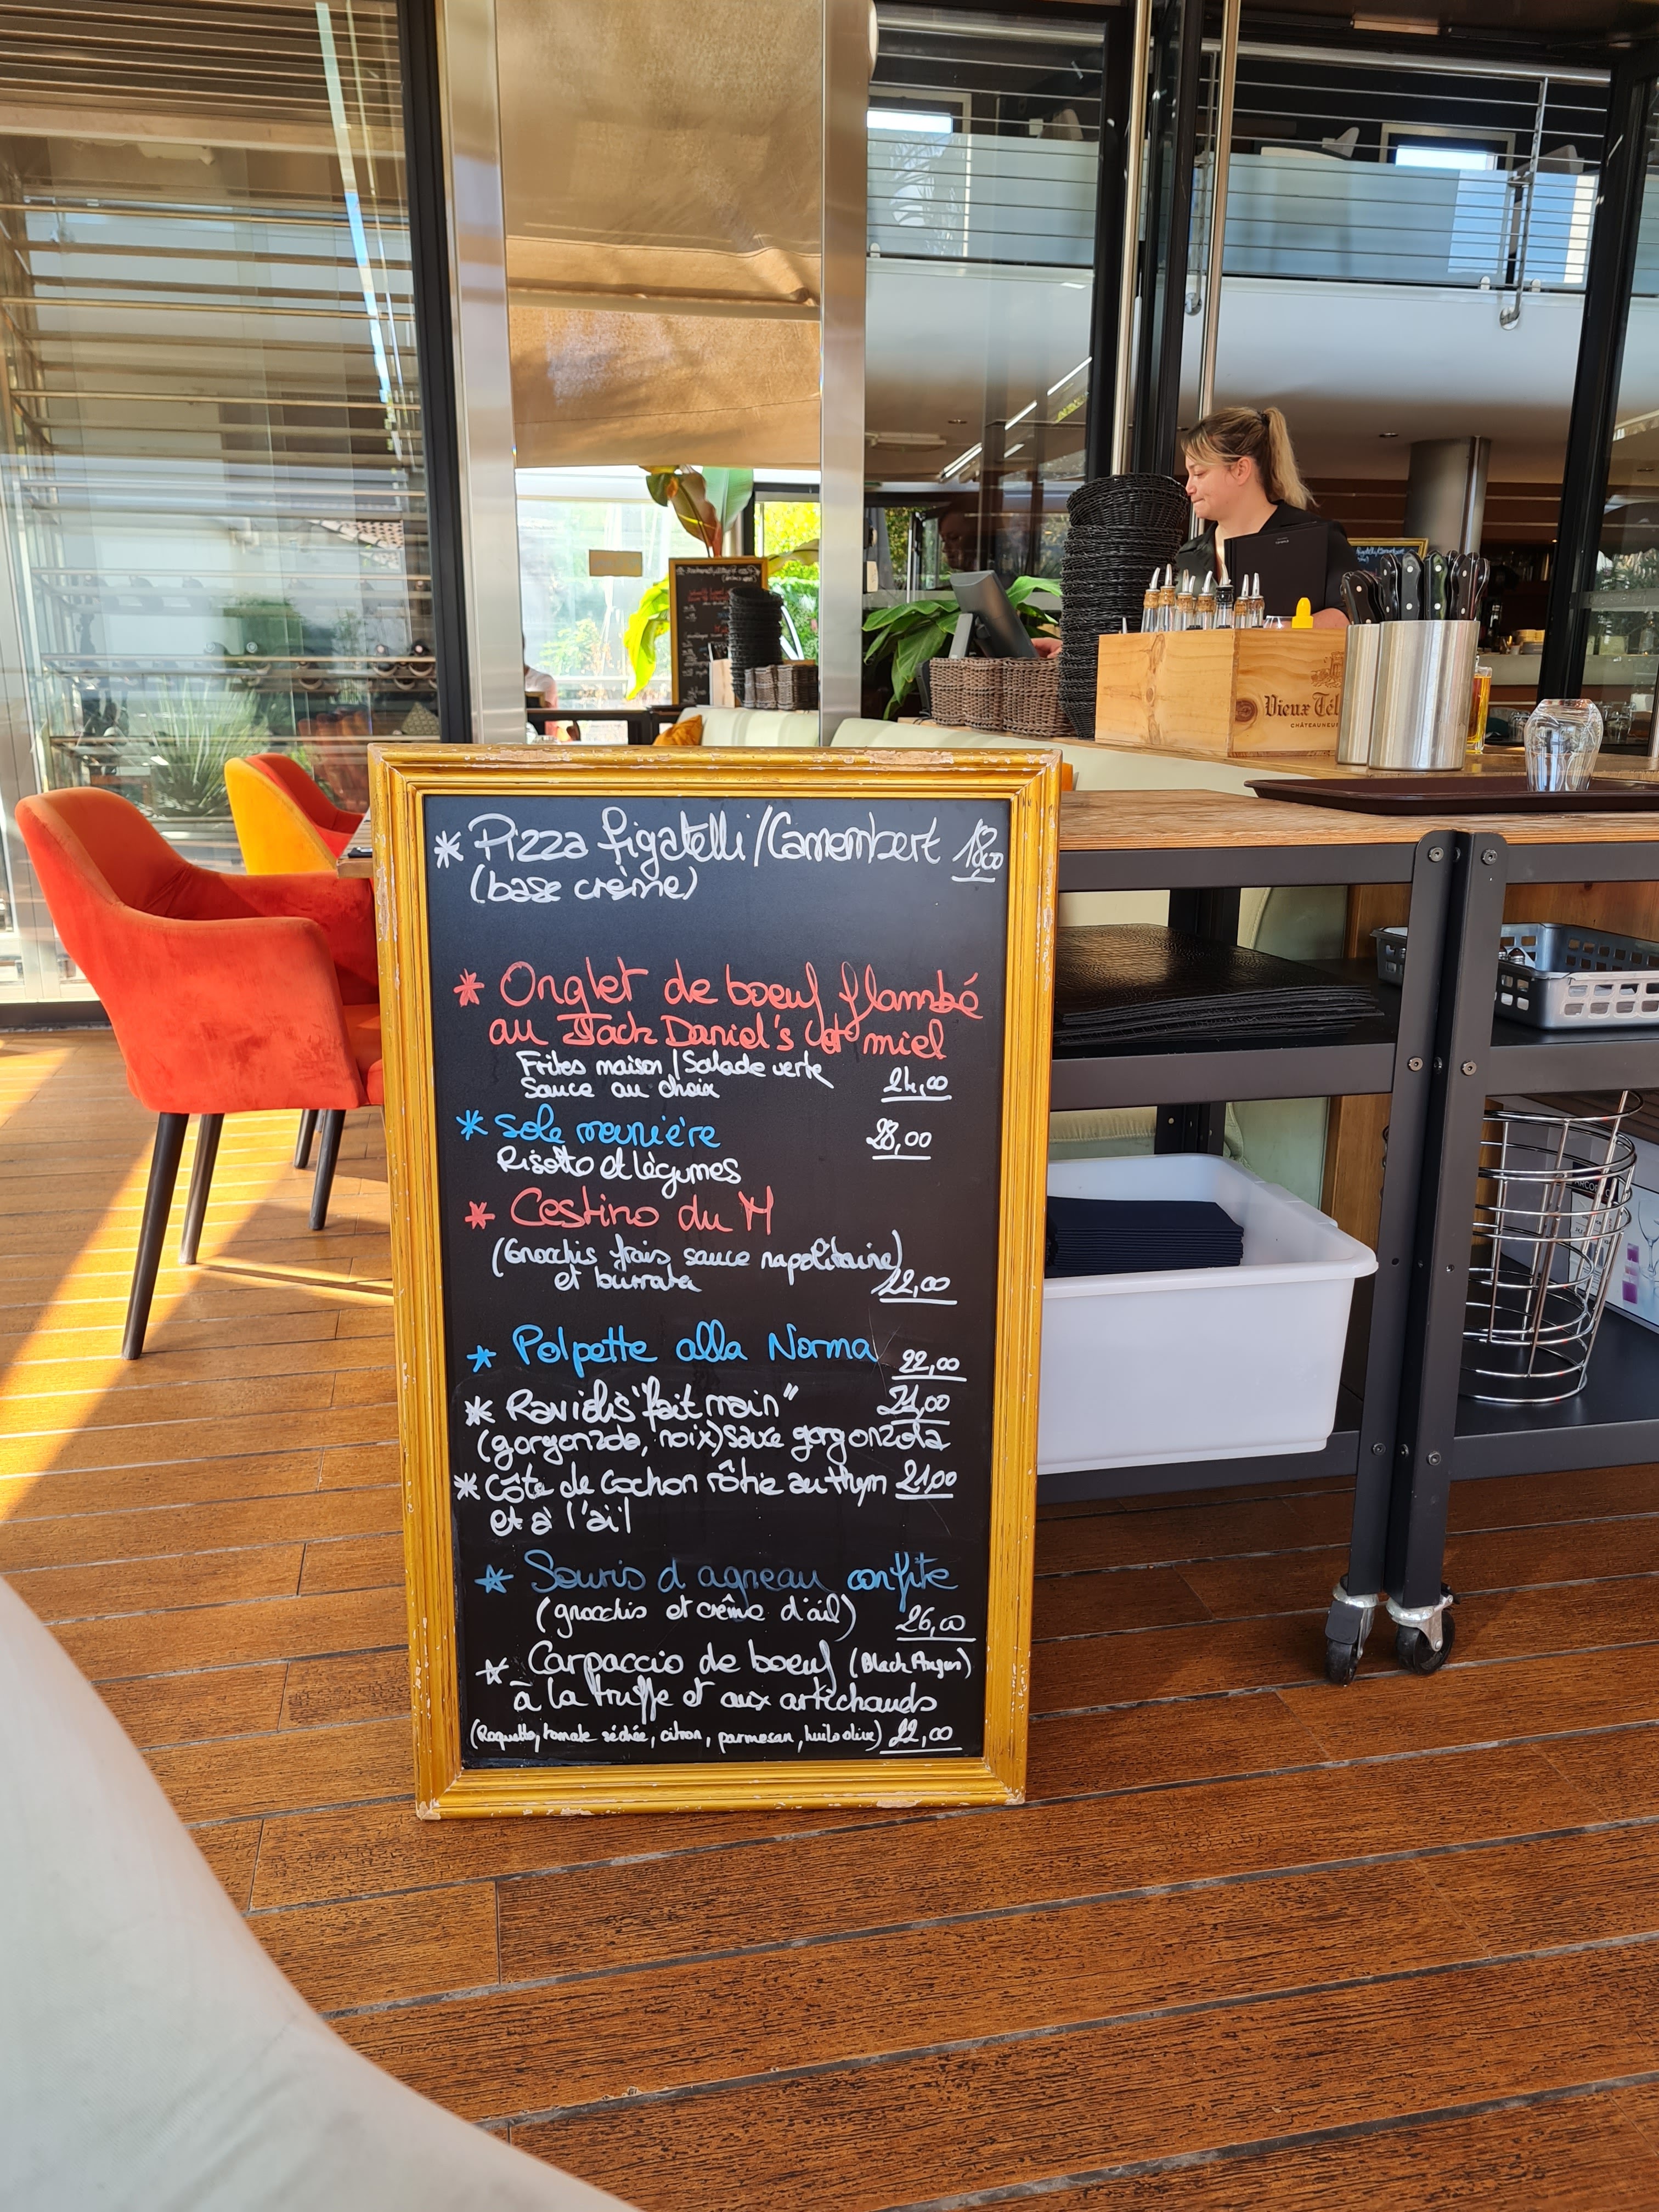 * Pizza figatelli/Camembert 18,00
(base crème)
* Onglet de boeuf flambé
au Jack Daniel's et miel
Frites maison/Salade verte
Sauce au choix 24,00
* Sole meunière 28,00
Risotto et légumes
* Cestino du M
(Gnocchis frais sauce napolitaine)
et burrata 22,00
* Polpette alla Norma 22,00
* Raviolis "fait main" 21,00
(gorgonzola, noix) sauce gorgonzola
* Côte de Cochon rôtie au thym 21,00
et à l'ail
* Souris d agneau confite
(gnocchis et crème d'ail) 26,00
* Carpaccio de boeuf (Black Angus)
à la truffe et aux artichauds
(Roquette, tomate séchée, citron, parmesan, huile olive) 22,00
Vieux Tél
CHÂTEAUNEUF